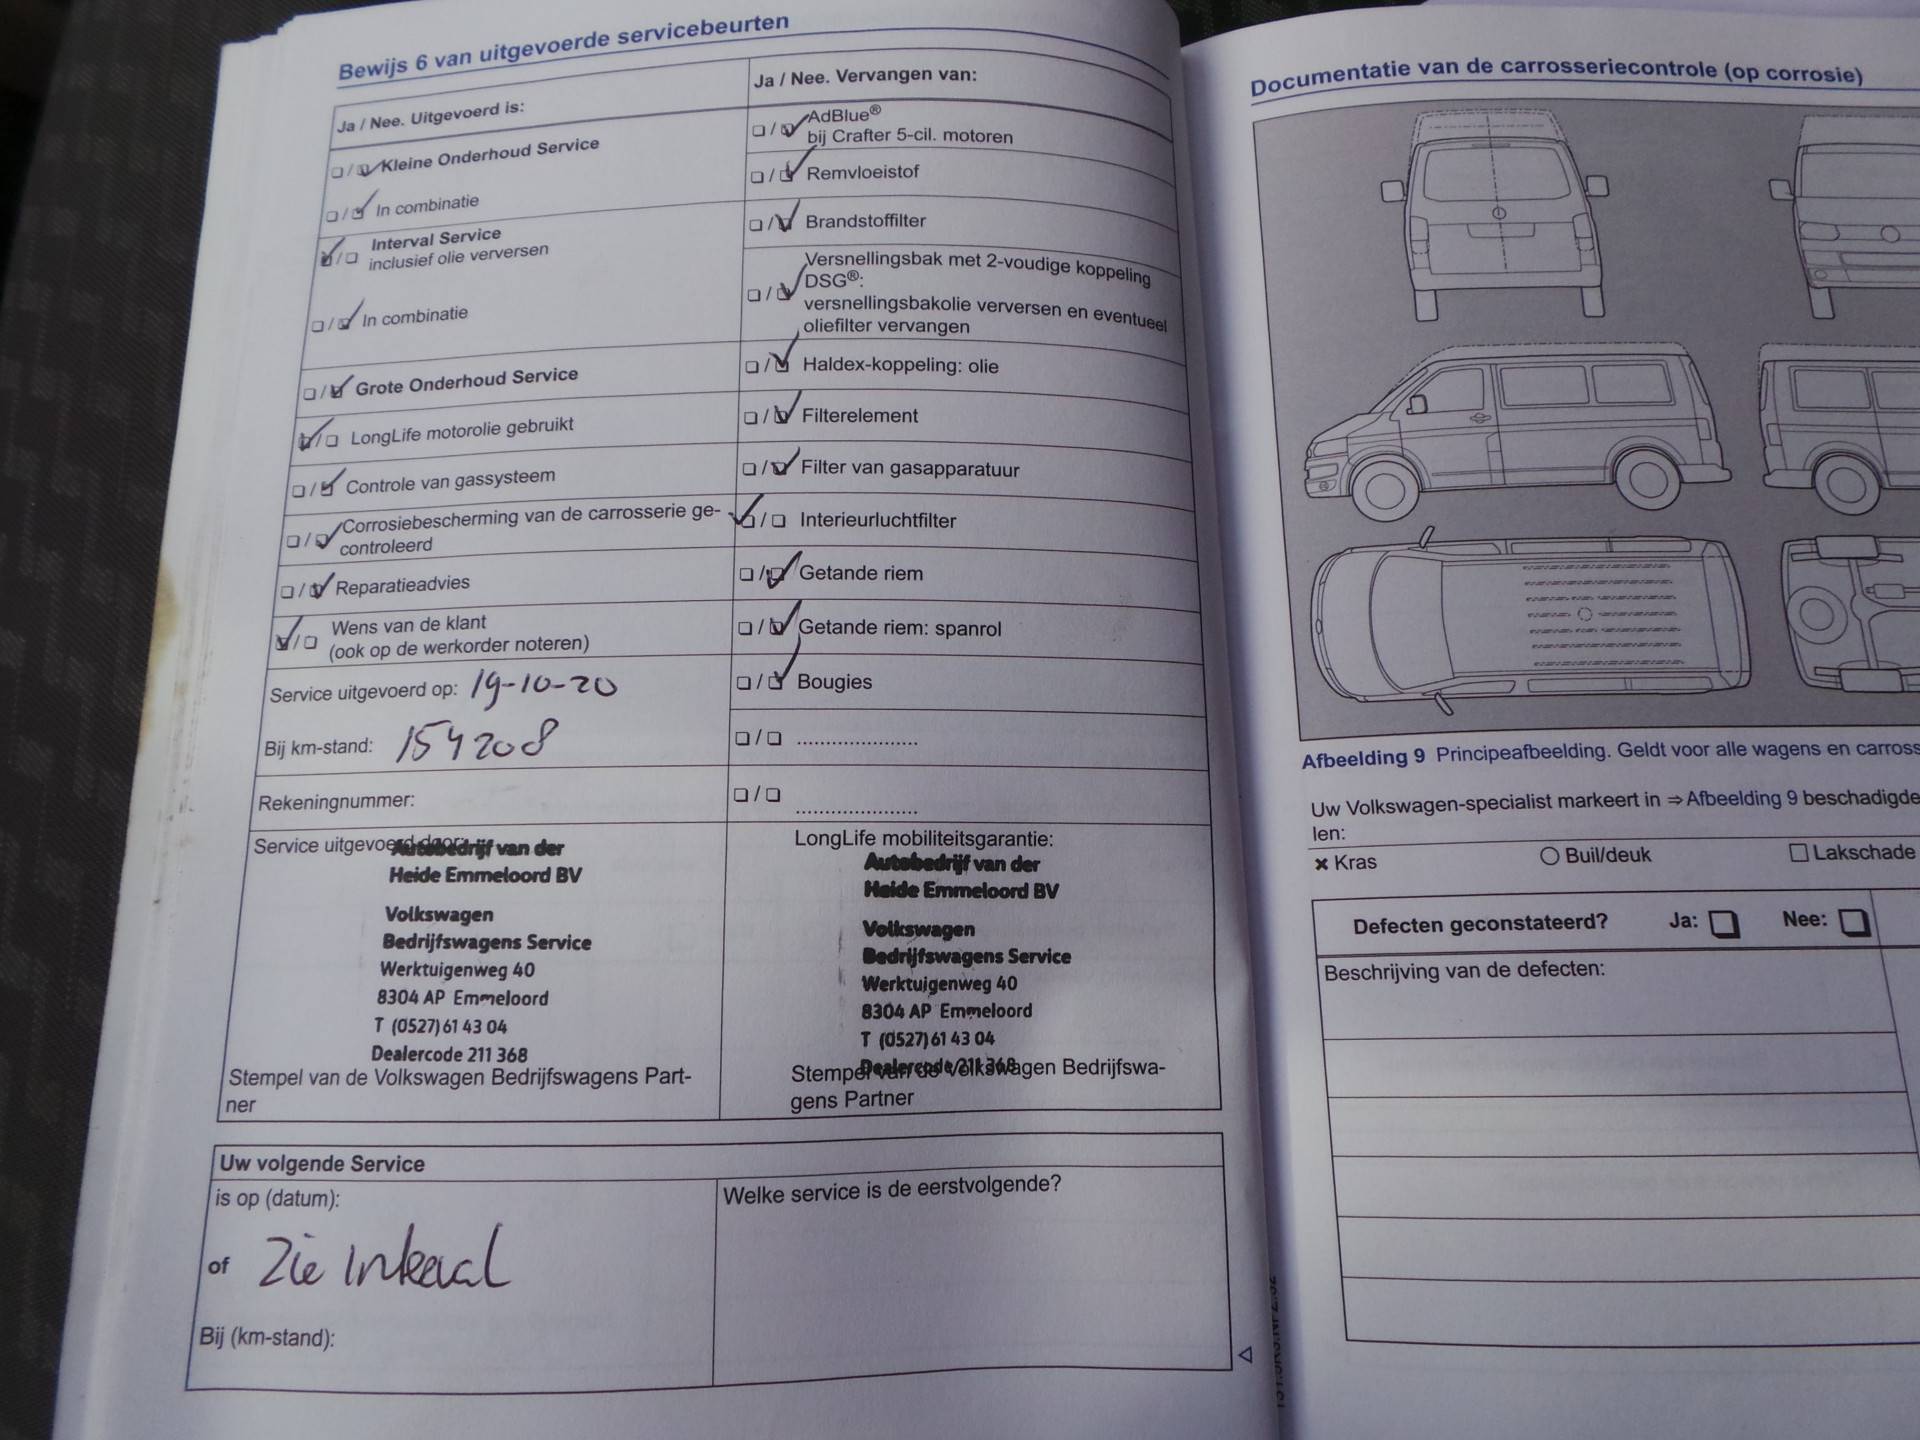 Bewijs 6 van uitgevoerde servicebeurten
Ja / Nee. Uitgevoerd is:
Kleine Onderhoud Service
In combinatie
Interval Service
inclusief olie verversen
In combinatie
Grote Onderhoud Service
LongLife motorolie gebruikt
Controle van gassysteem
Corrosiebescherming van de carrosserie ge-
controleerd
Reparatieadvies
Wens van de klant
(ook op de werkorder noteren)
Service uitgevoerd op: 19-10-20
Bij km-stand: 154208
Rekeningnummer:
Ja / Nee. Vervangen van:
AdBlue®
bij Crafter 5-cil. motoren
Remvloeistof
Brandstoffilter
Versnellingsbak met 2-voudige koppeling
DSG®:
versnellingsbakolie verversen en eventueel
oliefilter vervangen
Haldex-koppeling: olie
Filterelement
Filter van gasapparatuur
Interieurluchtfilter
Getande riem
Getande riem: spanrol
Bougies
Service uitgevoerd door:
Autobedrijf van der
Heide Emmeloord BV
Volkswagen
Bedrijfswagens Service
Werktuigenweg 40
8304 AP Emmeloord
T (0527) 61 43 04
Dealercode 211 368
Stempel van de Volkswagen Bedrijfswagens Part-
ner
LongLife mobiliteitsgarantie:
Autobedrijf van der
Heide Emmeloord BV
Volkswagen
Bedrijfswagens Service
Werktuigenweg 40
8304 AP Emmeloord
T (0527) 61 43 04
Dealercode 211 368
Stempel van de Volkswagen Bedrijfswa-
gens Partner
Uw volgende Service
is op (datum):
of Zie inkaal
Bij (km-stand):
Welke service is de eerstvolgende?
Documentatie van de carrosseriecontrole (op corrosie)
Afbeelding 9 Principeafbeelding. Geldt voor alle wagens en carross
Uw Volkswagen-specialist markeert in ⇒ Afbeelding 9 beschadigde
len:
× Kras
Buil/deuk
Lakschade
Defecten geconstateerd? Ja: Nee:
Beschrijving van de defecten: